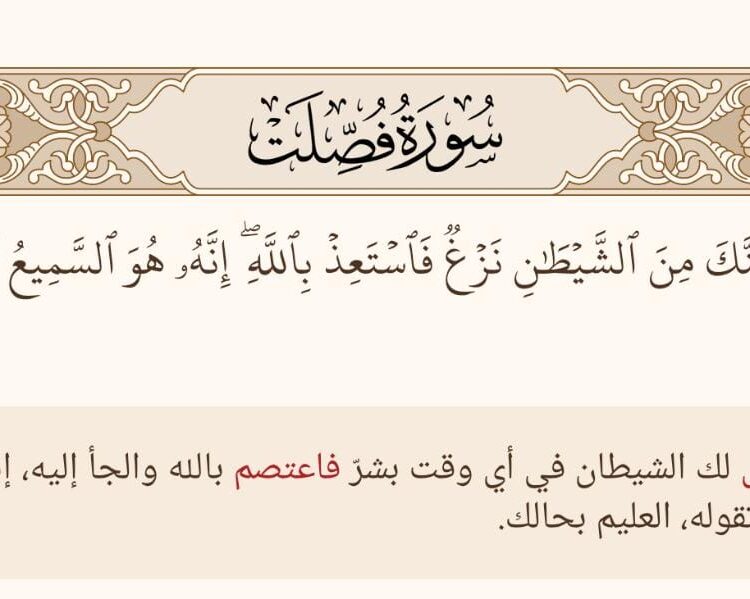 سُورَةُ فُصِّلَتْ
مِنَ ٱلشَّيْطَٰنِ نَزْغٌ فَٱسْتَعِذْ بِٱللَّهِ ۖ إِنَّهُۥ هُوَ ٱلسَّمِيعُ
لك الشيطان في أي وقت بشرّ فاعتصم بالله والجأ إليه،
تقوله، العليم بحالك.